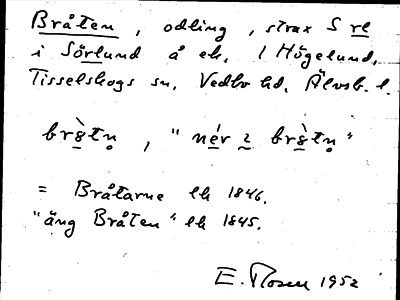 Bråten, odling, strax S rl
i Sörlund å eh. 1 Högelund,
Tisselskogs sn, Vedbo hd, Älvsb. l.
brs̀tn̥, "nér 2 brs̀tn̥"
= Bråtarne lk 1846.
"äng Bråten" lk 1845.
E. Rosen 1952